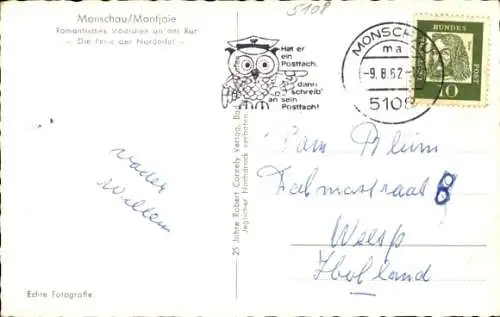 5108
Monschau/Montjoie
Romantisches Städtchen an der Rur
- Die Perle der Nordeifel -
Hat er
ein
Postfach,
dann
schreib'
an sein
Postfach!
MONSCHAU
ma
-9.8.62-
5108
DEUTSCHE BUNDESPOST
10
25 Jahre Robert Cornely Verlag, Bad
Jeglicher Nachdruck verboten
vader
Willem
Fam Blüm
Talmastraat 8
Weesp
Holland
Echte Fotografie